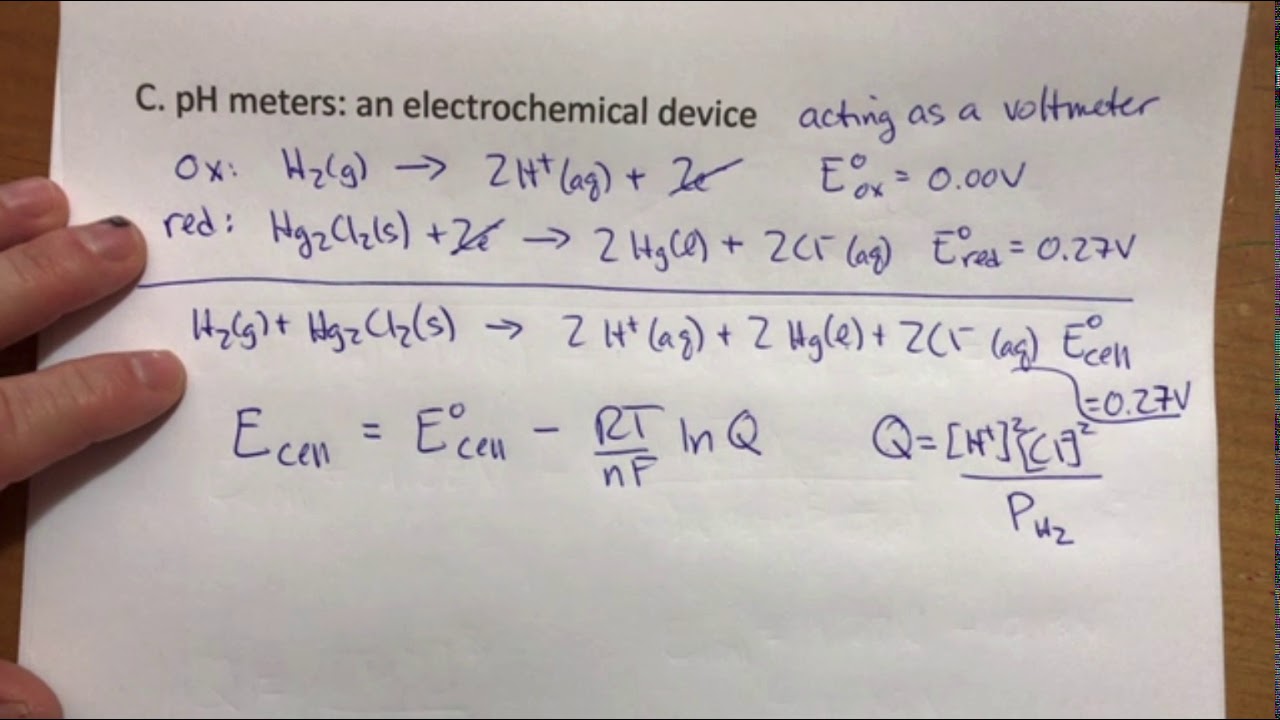 C. pH meters: an electrochemical device acting as a voltmeter
Ox: H₂(g) → 2H⁺(aq) + 2e⁻ E°ox = 0.00V
red: Hg₂Cl₂(s) + 2e⁻ → 2 Hg(l) + 2Cl⁻(aq) E°red = 0.27V
H₂(g) + Hg₂Cl₂(s) → 2 H⁺(aq) + 2 Hg(l) + 2Cl⁻(aq) E°cell
=0.27V
Ecell = E°cell − RT/nF ln Q Q = [H⁺]²[Cl⁻]²/P_H₂